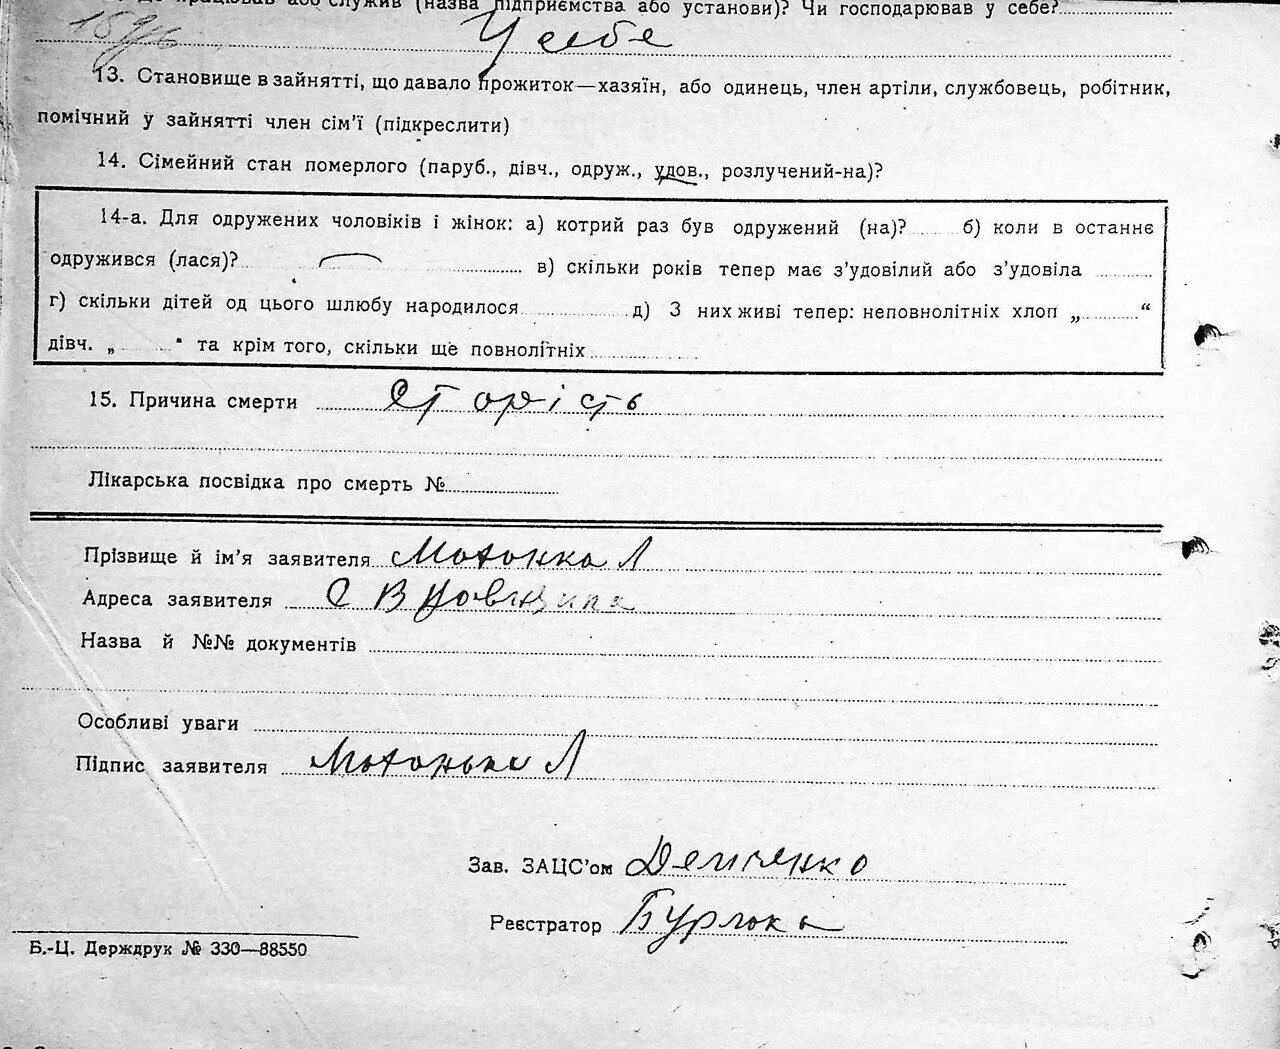 де працював або служив (назва підприємства або установи)? Чи господарював у себе?
У себе
13. Становище в зайнятті, що давало прожиток—хазяїн, або одинець, член артілі, службовець, робітник,
помічний у зайнятті член сім'ї (підкреслити)
14. Сімейний стан померлого (паруб., дівч., одруж., удов., розлучений-на)?
14-а. Для одружених чоловіків і жінок: а) котрий раз був одружений (на)? б) коли в останнє
одружився (лася)? в) скільки років тепер має з'удовілий або з'удовіла
г) скільки дітей од цього шлюбу народилося д) З них живі тепер: неповнолітніх хлоп „ “
дівч. „ “ та крім того, скільки ще повнолітніх
15. Причина смерти Старість
Лікарська посвідка про смерть №
Прізвище й ім'я заявителя Мотонка Л
Адреса заявителя С Вдовщина
Назва й №№ документів
Особливі уваги
Підпис заявителя Л
Зав. ЗАЦС'ом Демченко
Реєстратор Бурлака
Б.-Ц. Держдрук № 330—88550